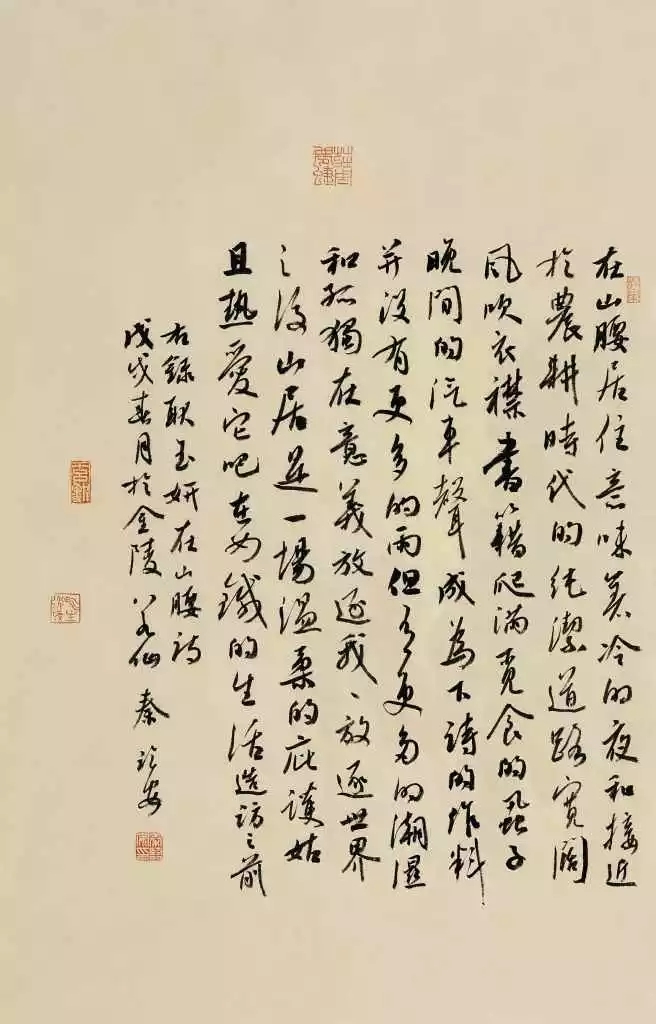 在山腰居住意味着冷的夜和接近
於農耕時代的純潔道路寬闊
風吹衣襟書籍爬滿覓食的蟲子
晚間的汽車聲成為下詩的作料
并没有更多的雨但有更多的潮濕
和孤獨在意義放逐我、放逐世界
之後山居是一場溫柔的庇護姑
且熱愛它吧在如鐵的生活造訪之前
右錄耿玉妍在山腰詩
戊戌春月於金陵 仙 秦